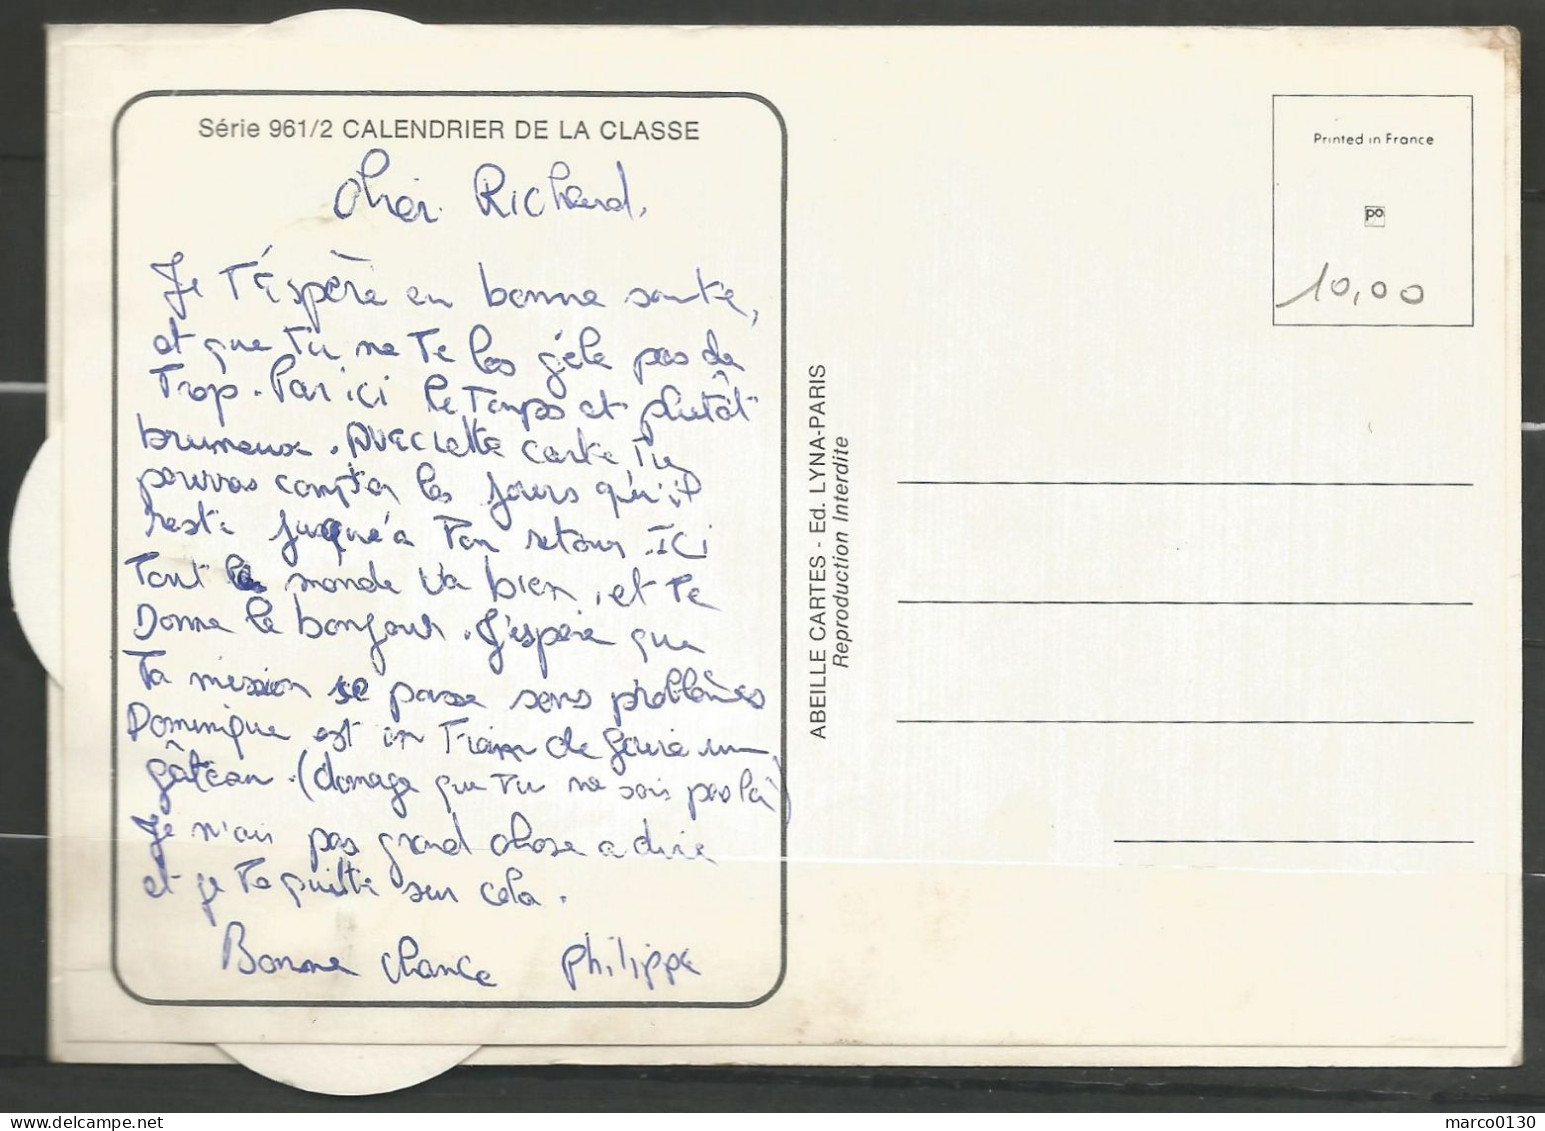 Série 961/2 CALENDRIER DE LA CLASSE
Cher Richard,
Je T'éspère en bonne sante,
et que Tu ne Te les gèle pas de
Trop. Par ici le Temps et plutôt
brumeux. Avec cette carte Tu
pourras compter les jours qu'il
reste jusqu'a Ton retour. Ici
Tout le monde va bien, et Te
Donne le bonjour. J'espère que
Ta mission se passe sens problèmes
Dominique est en Train de faire un
gâteau. (domage que Tu ne sois pas là)
Je n'ais pas grand chose a dire
et je Te quitte sur cela.
Bonne chance Philippe
ABEILLE CARTES - Ed. LYNA-PARIS
Reproduction Interdite
Printed in France
po
10,00
marco0130